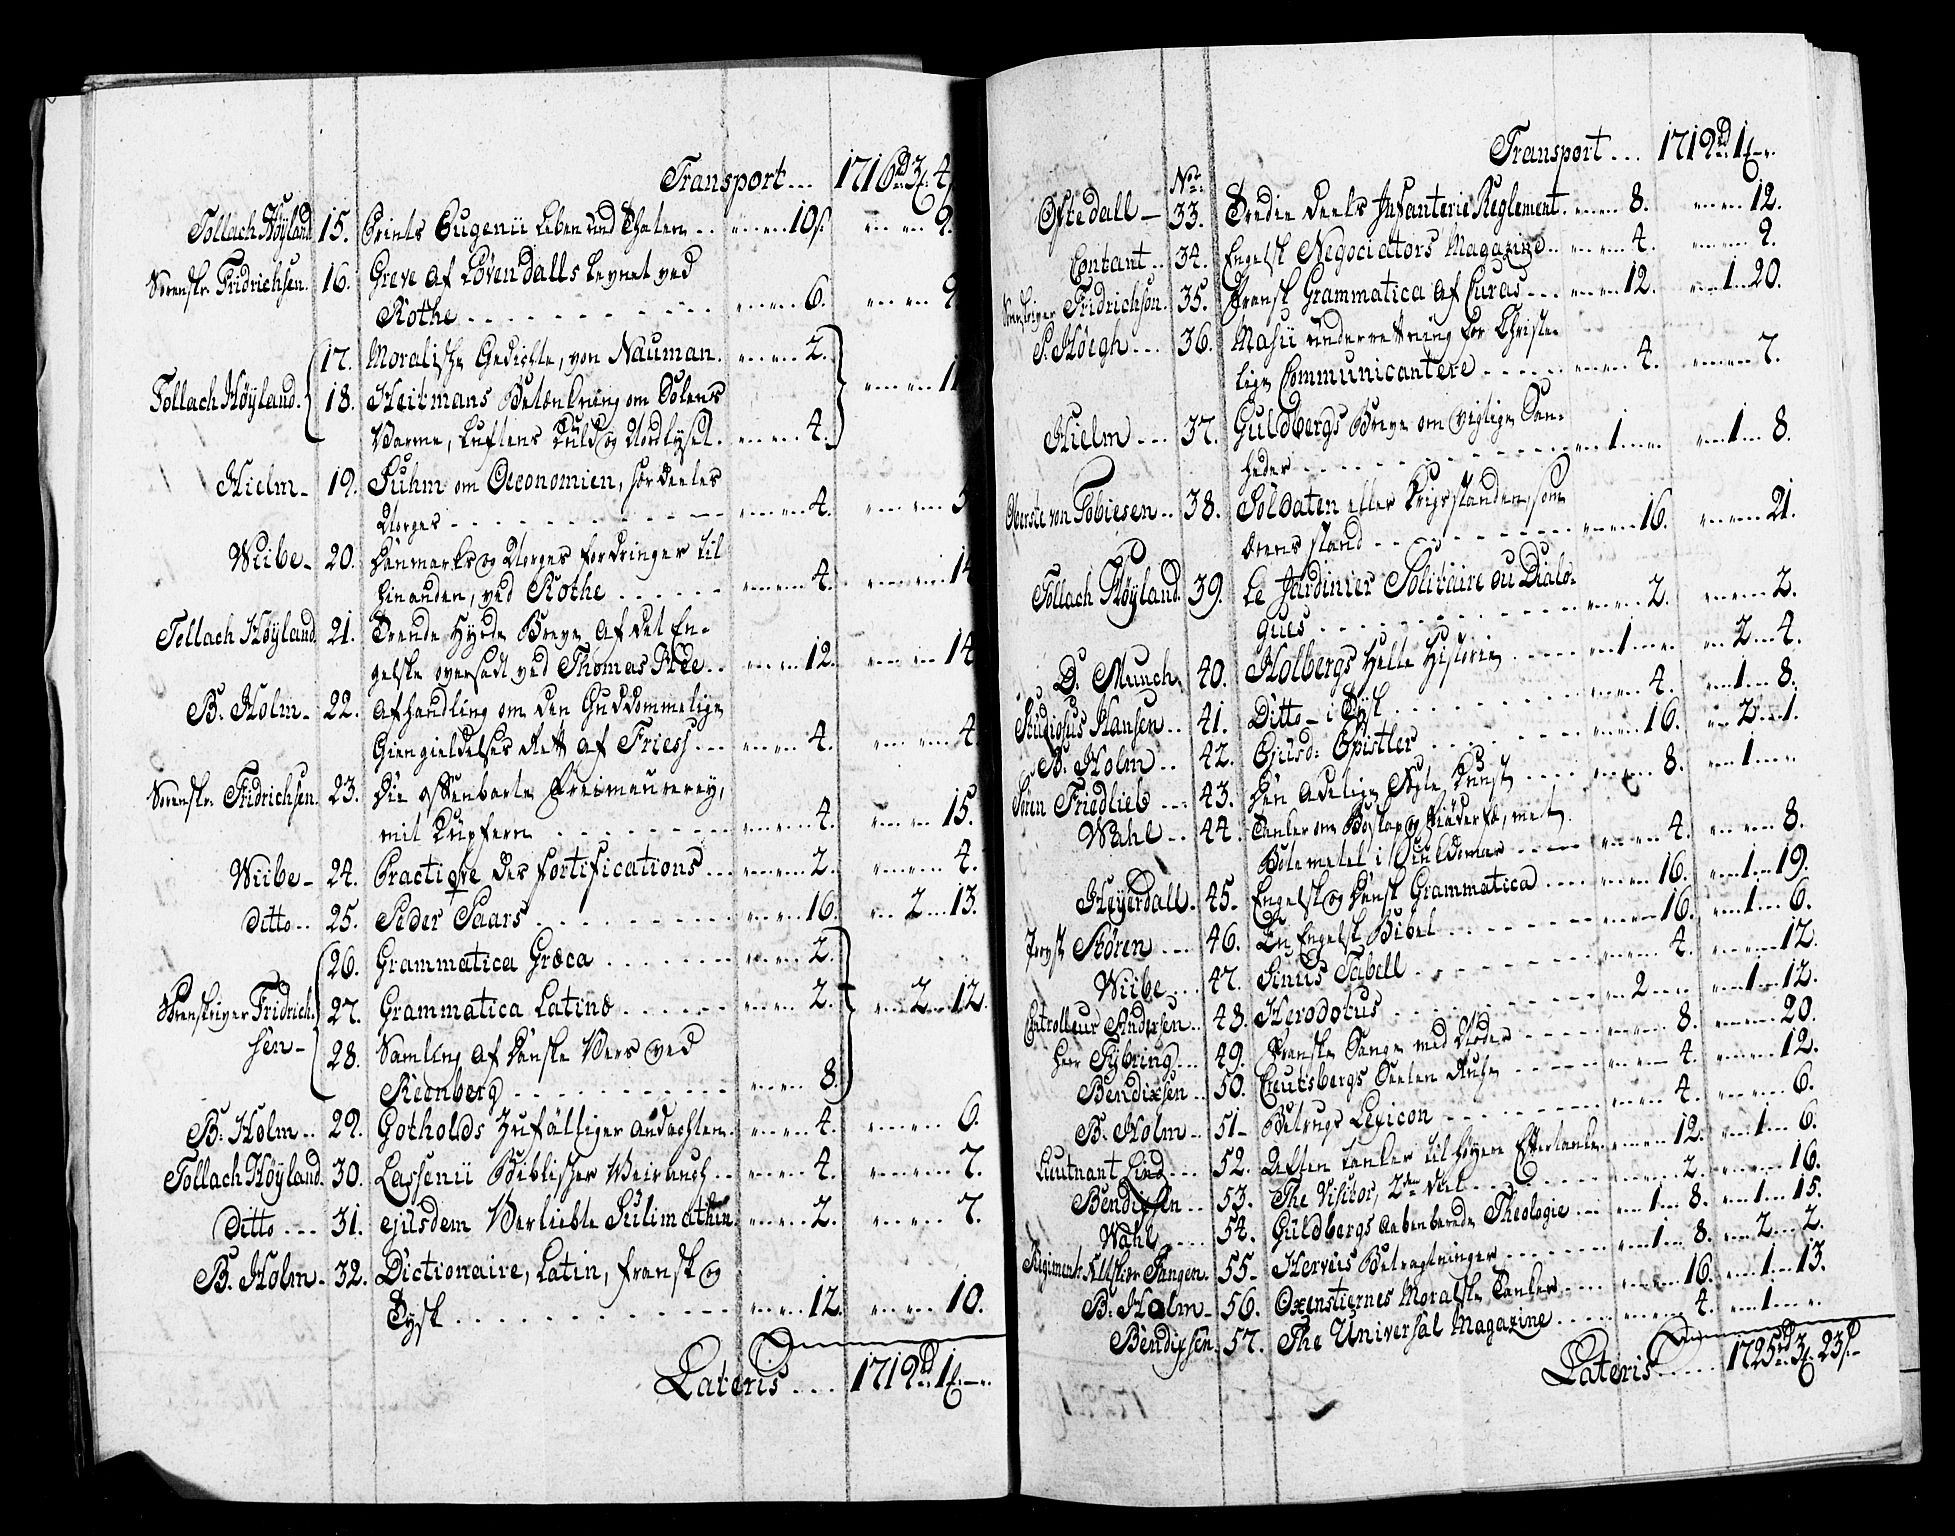 Transport... 1716rd 3. 4
Tollach Höyland 15. Prints Eugenii Leben und Thaten .. 10s. 9.
Sorenskr. Fridrichsen. 16. Greve af Lövendalls Levnet ved
Rothe 6. 9
17. Moralische Gedichte, von Nauman. 2.
Tollach Höyland. 18. Heitmans Betænkning om Solens 11
Varme, Luftens Kuld og Nordlyset. 4.
Hielm 19. Suhm om Oeconomien, særdeeles
Norges 4. 5
Wiibe 20. Danmarks og Norges fordringer til
hinanden, ved Rothe 4. 14
Tollach Höyland. 21. Breve af det En-
gelske oversadt ved Thomas 12. 14
B. Holm 22. Afhandling om den Guddommelige
Giengieldelses Rett af Friess 4. 4
Sorenskr. Fridrichsen. 23. Die offenbarte Freimaurerey,
mit Kupfern 4. 15.
Wiibe 24. Practique des fortifications 2. 4.
Ditto 25. Peder Paars 16. 2 13.
26. Grammatica Græca 2.
Sorenskriver Fridrich- 27. Grammatica Latinæ 2. 2 12.
sen 28. Samling af Danske Vers ved
8.
B. Holm 29. Gotholds Zufälliger Andachten. 4. 6.
Tollach Höyland. 30. Lassenii Biblischer Weirauch 4. 7.
Ditto 31. ejusdem Verliebte Sulimathin. 2. 7.
B. Holm 32. Dictionaire, Latin, fransk og
Tysk 12. 10.
Lateris.... 1719rd 1
Transport... 1719rd 1
No
Oftedall 33. Tredie deels Infanterie Reglement. 8. 12.
Contant 34. Engelsk Negociators Magazine 4. 9.
Sorenskriver Fridrichsen. 35. Fransk Grammatica af Curas 12. 1 20.
P. Höegh 36. Masii underretning for Christe-
lige Communicantere 4. 7.
Hielm 37. Guldbergs Breve om vigtige San-
heder 1 1 8.
Oberste von Tobiesen 38. Soldaten eller Krigsstanden, som
stand 16. 21.
Tollach Höyland 39. Le Jardinier Solitaire ou Dialo-
gues 2. 2.
D. Munch 40. Holbergs Helte Historie 1 2 4.
Studiosus Hansen 41. Ditto i Tysk 4. 1 8.
B. Holm 42. Ejusd: Epistler 16. 2 1.
Sören Friedlieb 43. Den Adelige Kunst 8. 1
Wahl 44. Tanker om Boskap med
i 4. 8.
Heyerdall. 45. Engelsk og Dansk Grammatica 16. 1 19.
Provst Stören 46. En Engelsk Bibel 16. 1 6.
Wiibe 47. Sinus Tabell 4. 12.
Controlleur Andersen 48. Herodotus 2 1 12.
Herr Fybring 49. Franske Sange med Noder 8. 20.
Bendixsen 50. Creutsbergs Seelen Ruhe 4. 12.
B. Holm 51 Betrugs Lexicon 4. 6.
Lieutnant Lind 52. Aften tanker til höyere Eftertanke 12. 1 6.
Bendixsen 53. The Visitor, 2den deel 2. 16.
Wahl 54. Guldbergs aabenbarede Theologie 1 8. 1 15.
Regiments Tangen. 55 Herveis Betragtninger 1 8. 2 2.
B. Holm 56. Oxenstiernes Moralske Tanker 16. 1 13.
Bendixsen 57. The Universal Magazine 4. 1
Lateris.... 1725rd 3. 23s